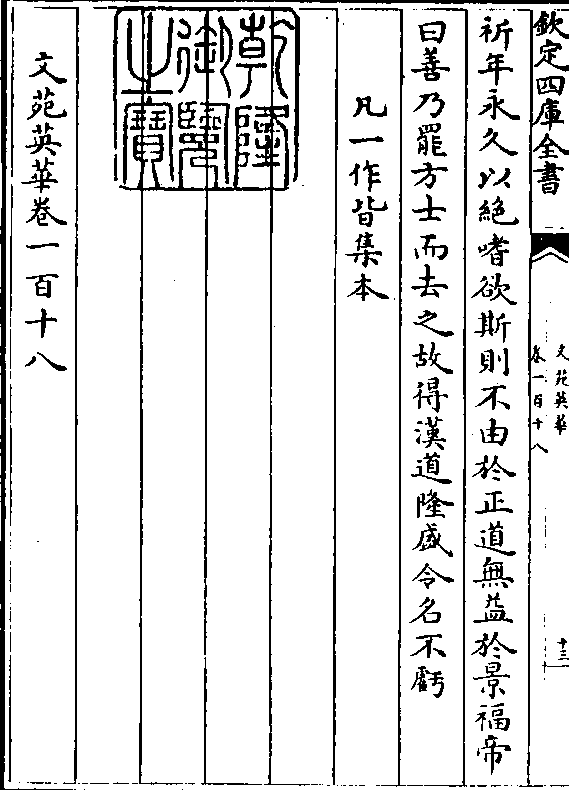 欽定四庫全書
文苑英華
卷一百十八
十三
祈年永久以絶嗜欲斯則不由於正道無益於景福帝
曰善乃罷方士而去之故得漢道隆盛令名不虧
凡一作皆集本
乾隆
御覽
之寶
文苑英華卷一百十八